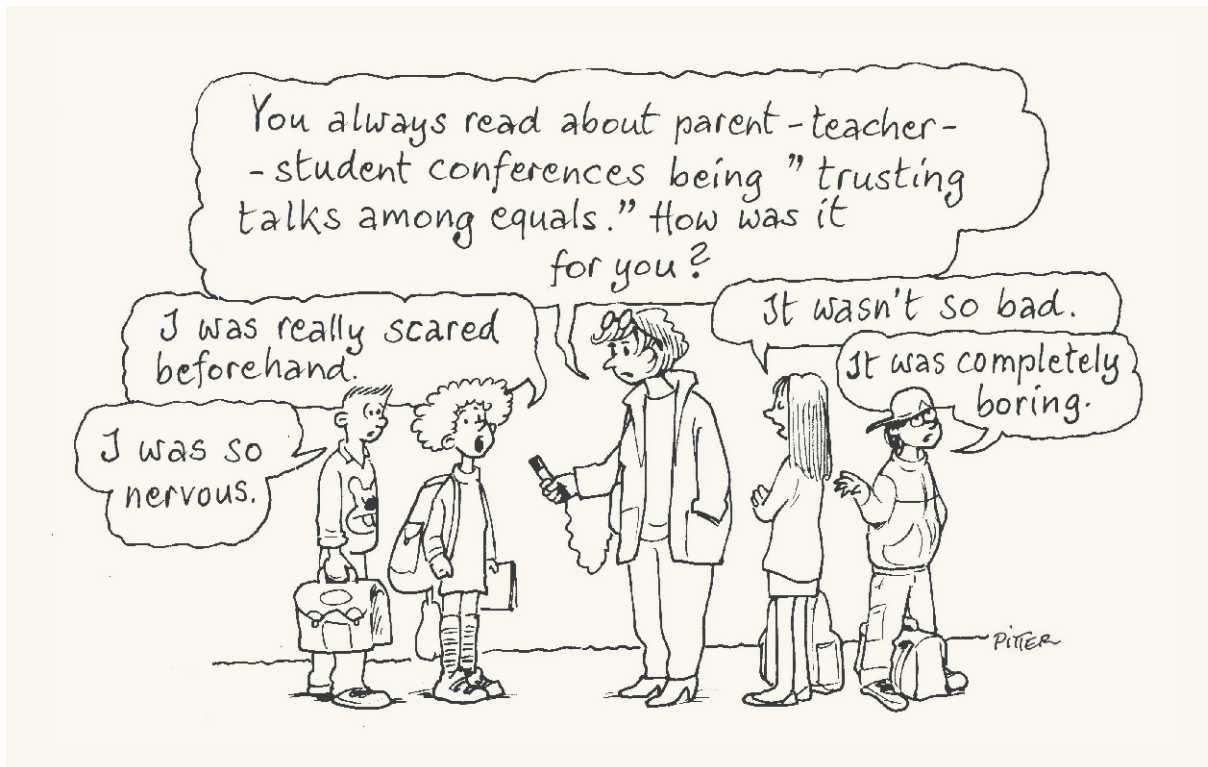 You always read about parent-teacher-
-student conferences being " trusting
talks among equals." How was it
for you?
I was really scared
beforehand.
I was so
nervous.
It wasn't so bad.
It was completely
boring.
PiTTER